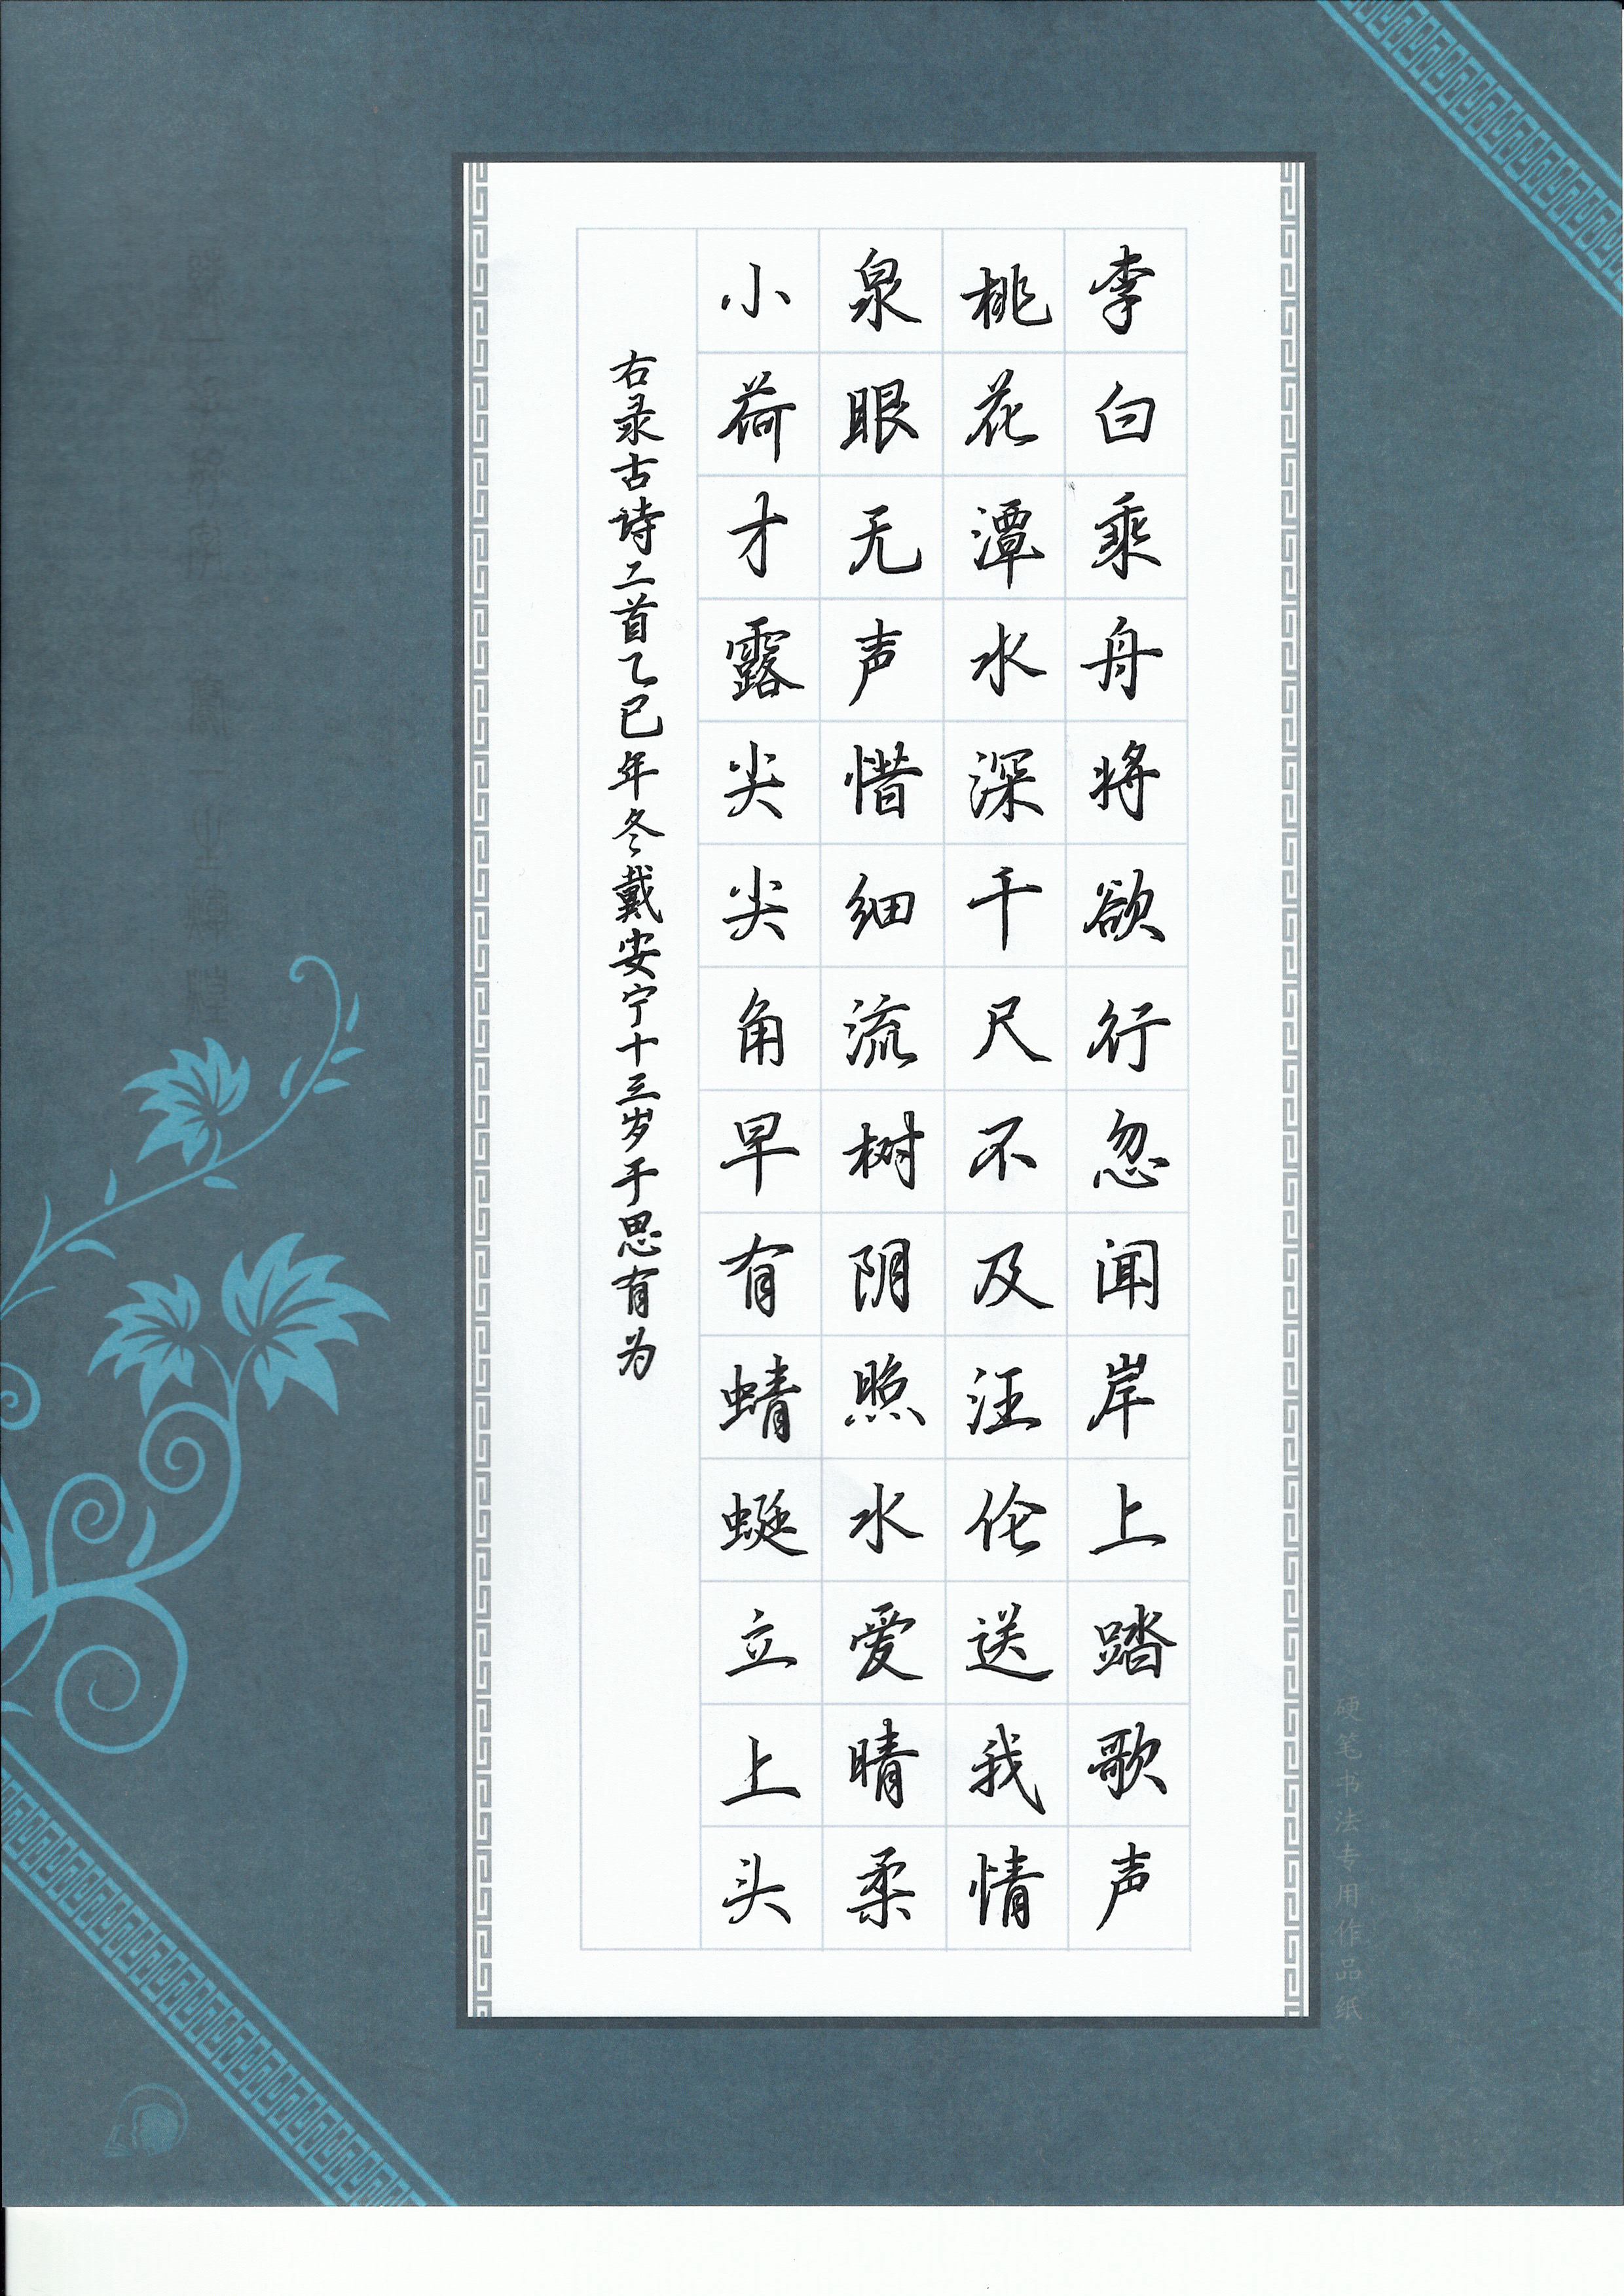 李白乘舟将欲行忽闻岸上踏歌声
桃花潭水深千尺不及汪伦送我情
泉眼无声惜细流树阴照水爱晴柔
小荷才露尖尖角早有蜻蜓立上头
右录古诗二首乙巳年冬戴安宁十三岁于思有为
硬笔书法专用作品纸